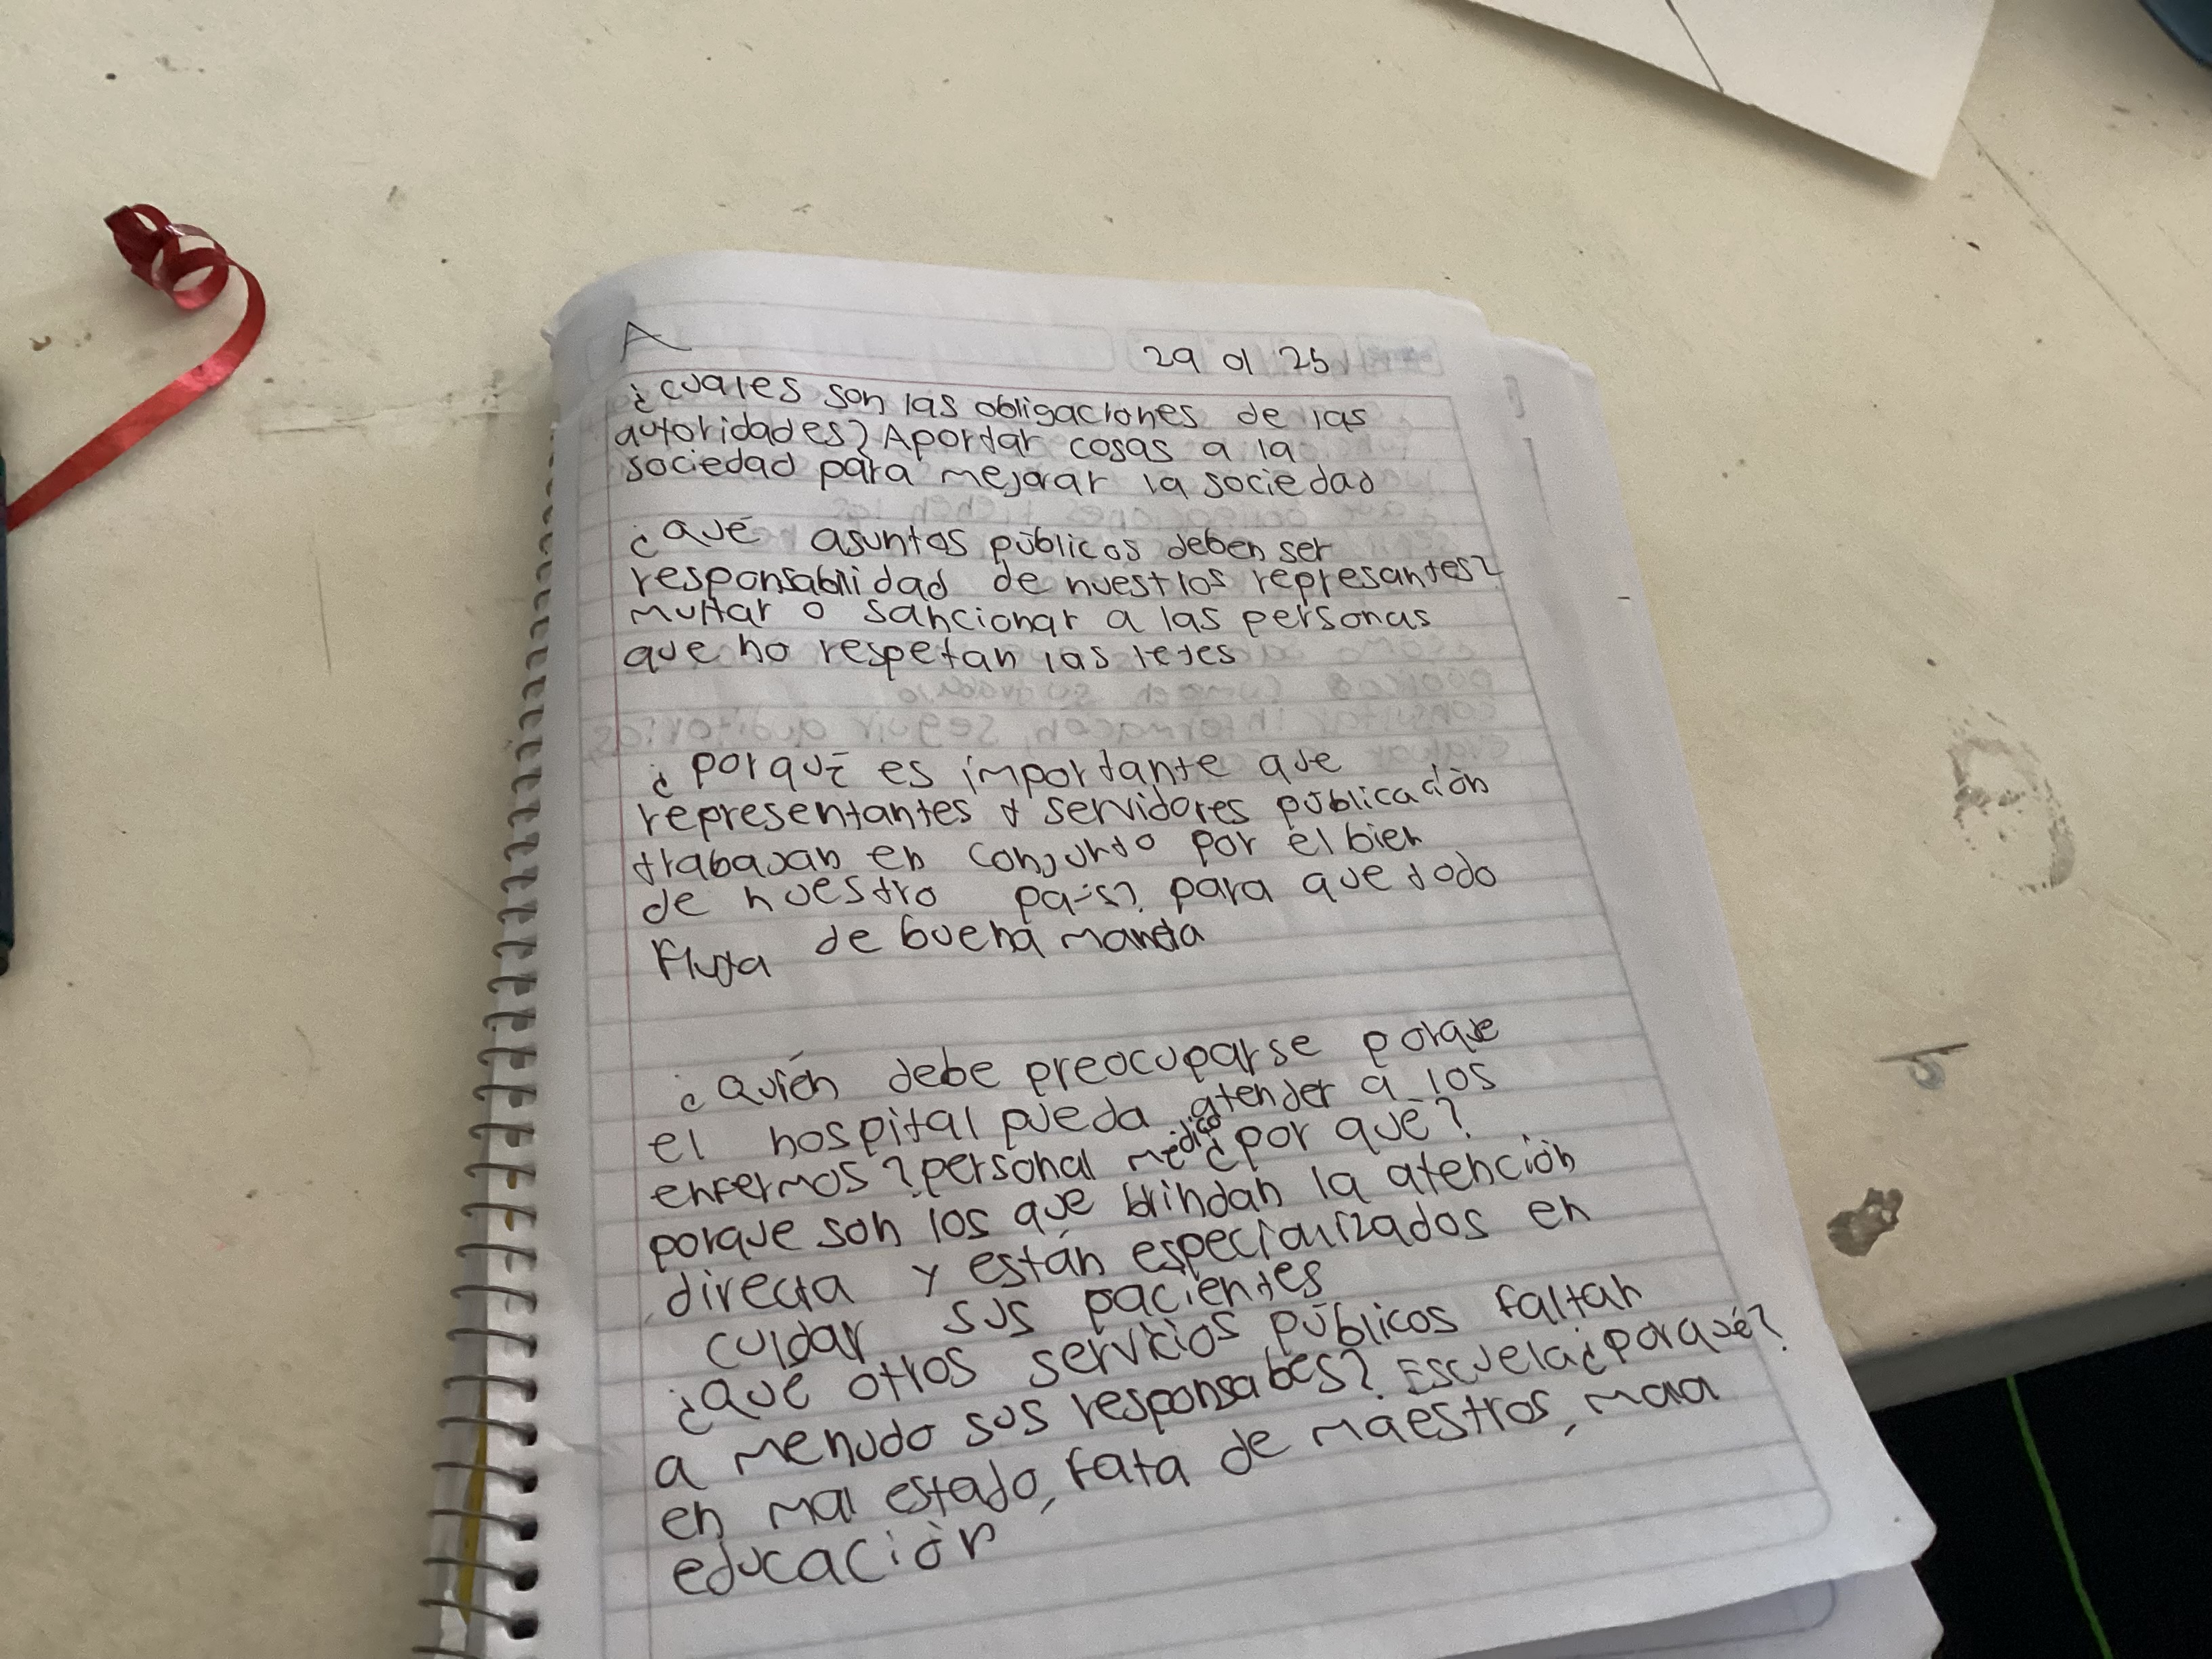 A
29 01 25
¿cuales son las obligaciones de las
autoridades? Aportar cosas a la
sociedad para mejorar la sociedad
¿qué asuntos públicos deben ser
responsabilidad de nuestros represantes?
multar o sancionar a las personas
que no respetan las leyes
¿porqué es importante que
representantes y servidores publicación
trabajan en conjunto por el bien
de nuestro país? para que todo
fluya de buena manera
¿Quién debe preocuparse porque
el hospital pueda atender a los
enfermos? personal médico ¿por qué?
porque son los que brindan la atención
directa y están especializados en
cuidar sus pacientes
¿qué otros servicios públicos faltan
a menudo sus responsabes? Escuela ¿por qué?
en mal estado, fata de maestros, mala
educación